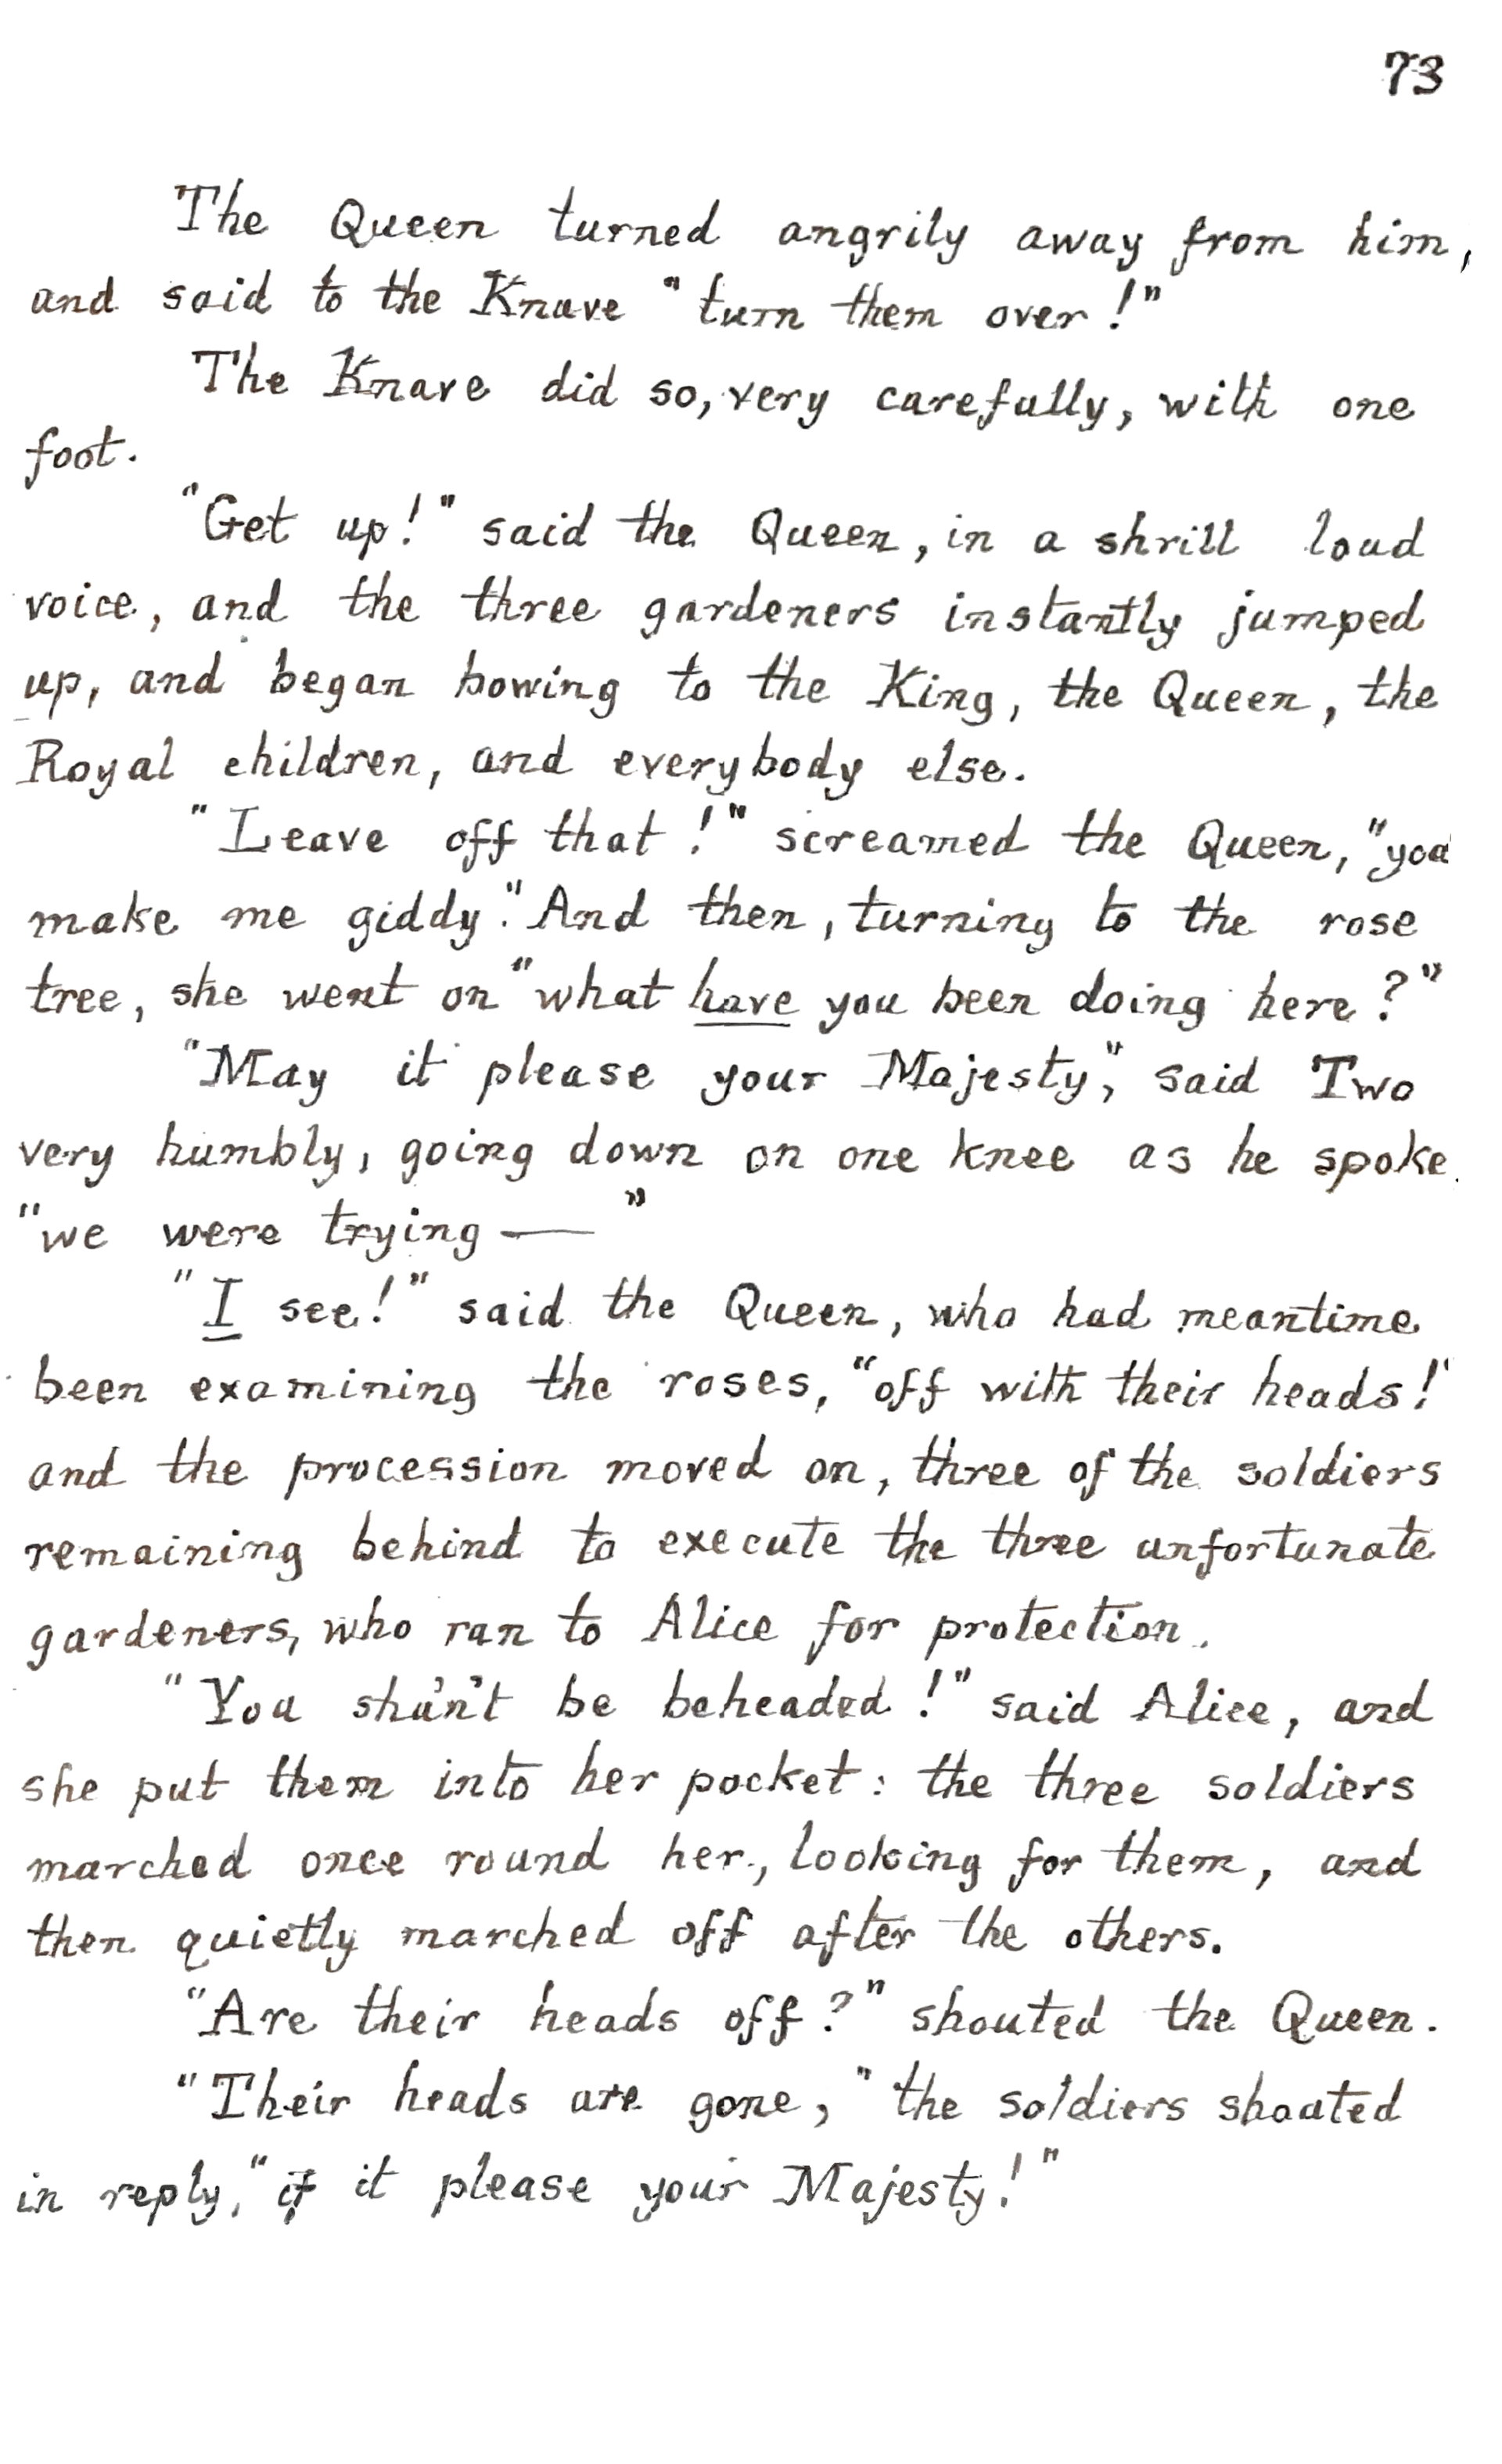 73
The Queen turned angrily away from him,
and said to the Knave "turn them over!"
The Knave did so, very carefully, with one
foot.
"Get up!" said the Queen, in a shrill loud
voice, and the three gardeners instantly jumped
up, and began bowing to the King, the Queen, the
Royal children, and everybody else.
"Leave off that!" screamed the Queen, "you
make me giddy." And then, turning to the rose
tree, she went on "what have you been doing here?"
"May it please your Majesty," said Two
very humbly, going down on one knee as he spoke,
"we were trying — "
"I see!" said the Queen, who had meantime
been examining the roses, "off with their heads!"
and the procession moved on, three of the soldiers
remaining behind to execute the three unfortunate
gardeners, who ran to Alice for protection.
"You sha'n't be beheaded!" said Alice, and
she put them into her pocket: the three soldiers
marched once round her, looking for them, and
then quietly marched off after the others.
"Are their heads off?" shouted the Queen.
"Their heads are gone," the soldiers shouted
in reply, "if it please your Majesty!"